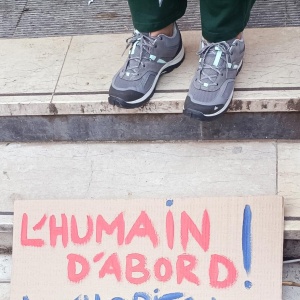 L'HUMAIN
D'ABORD !